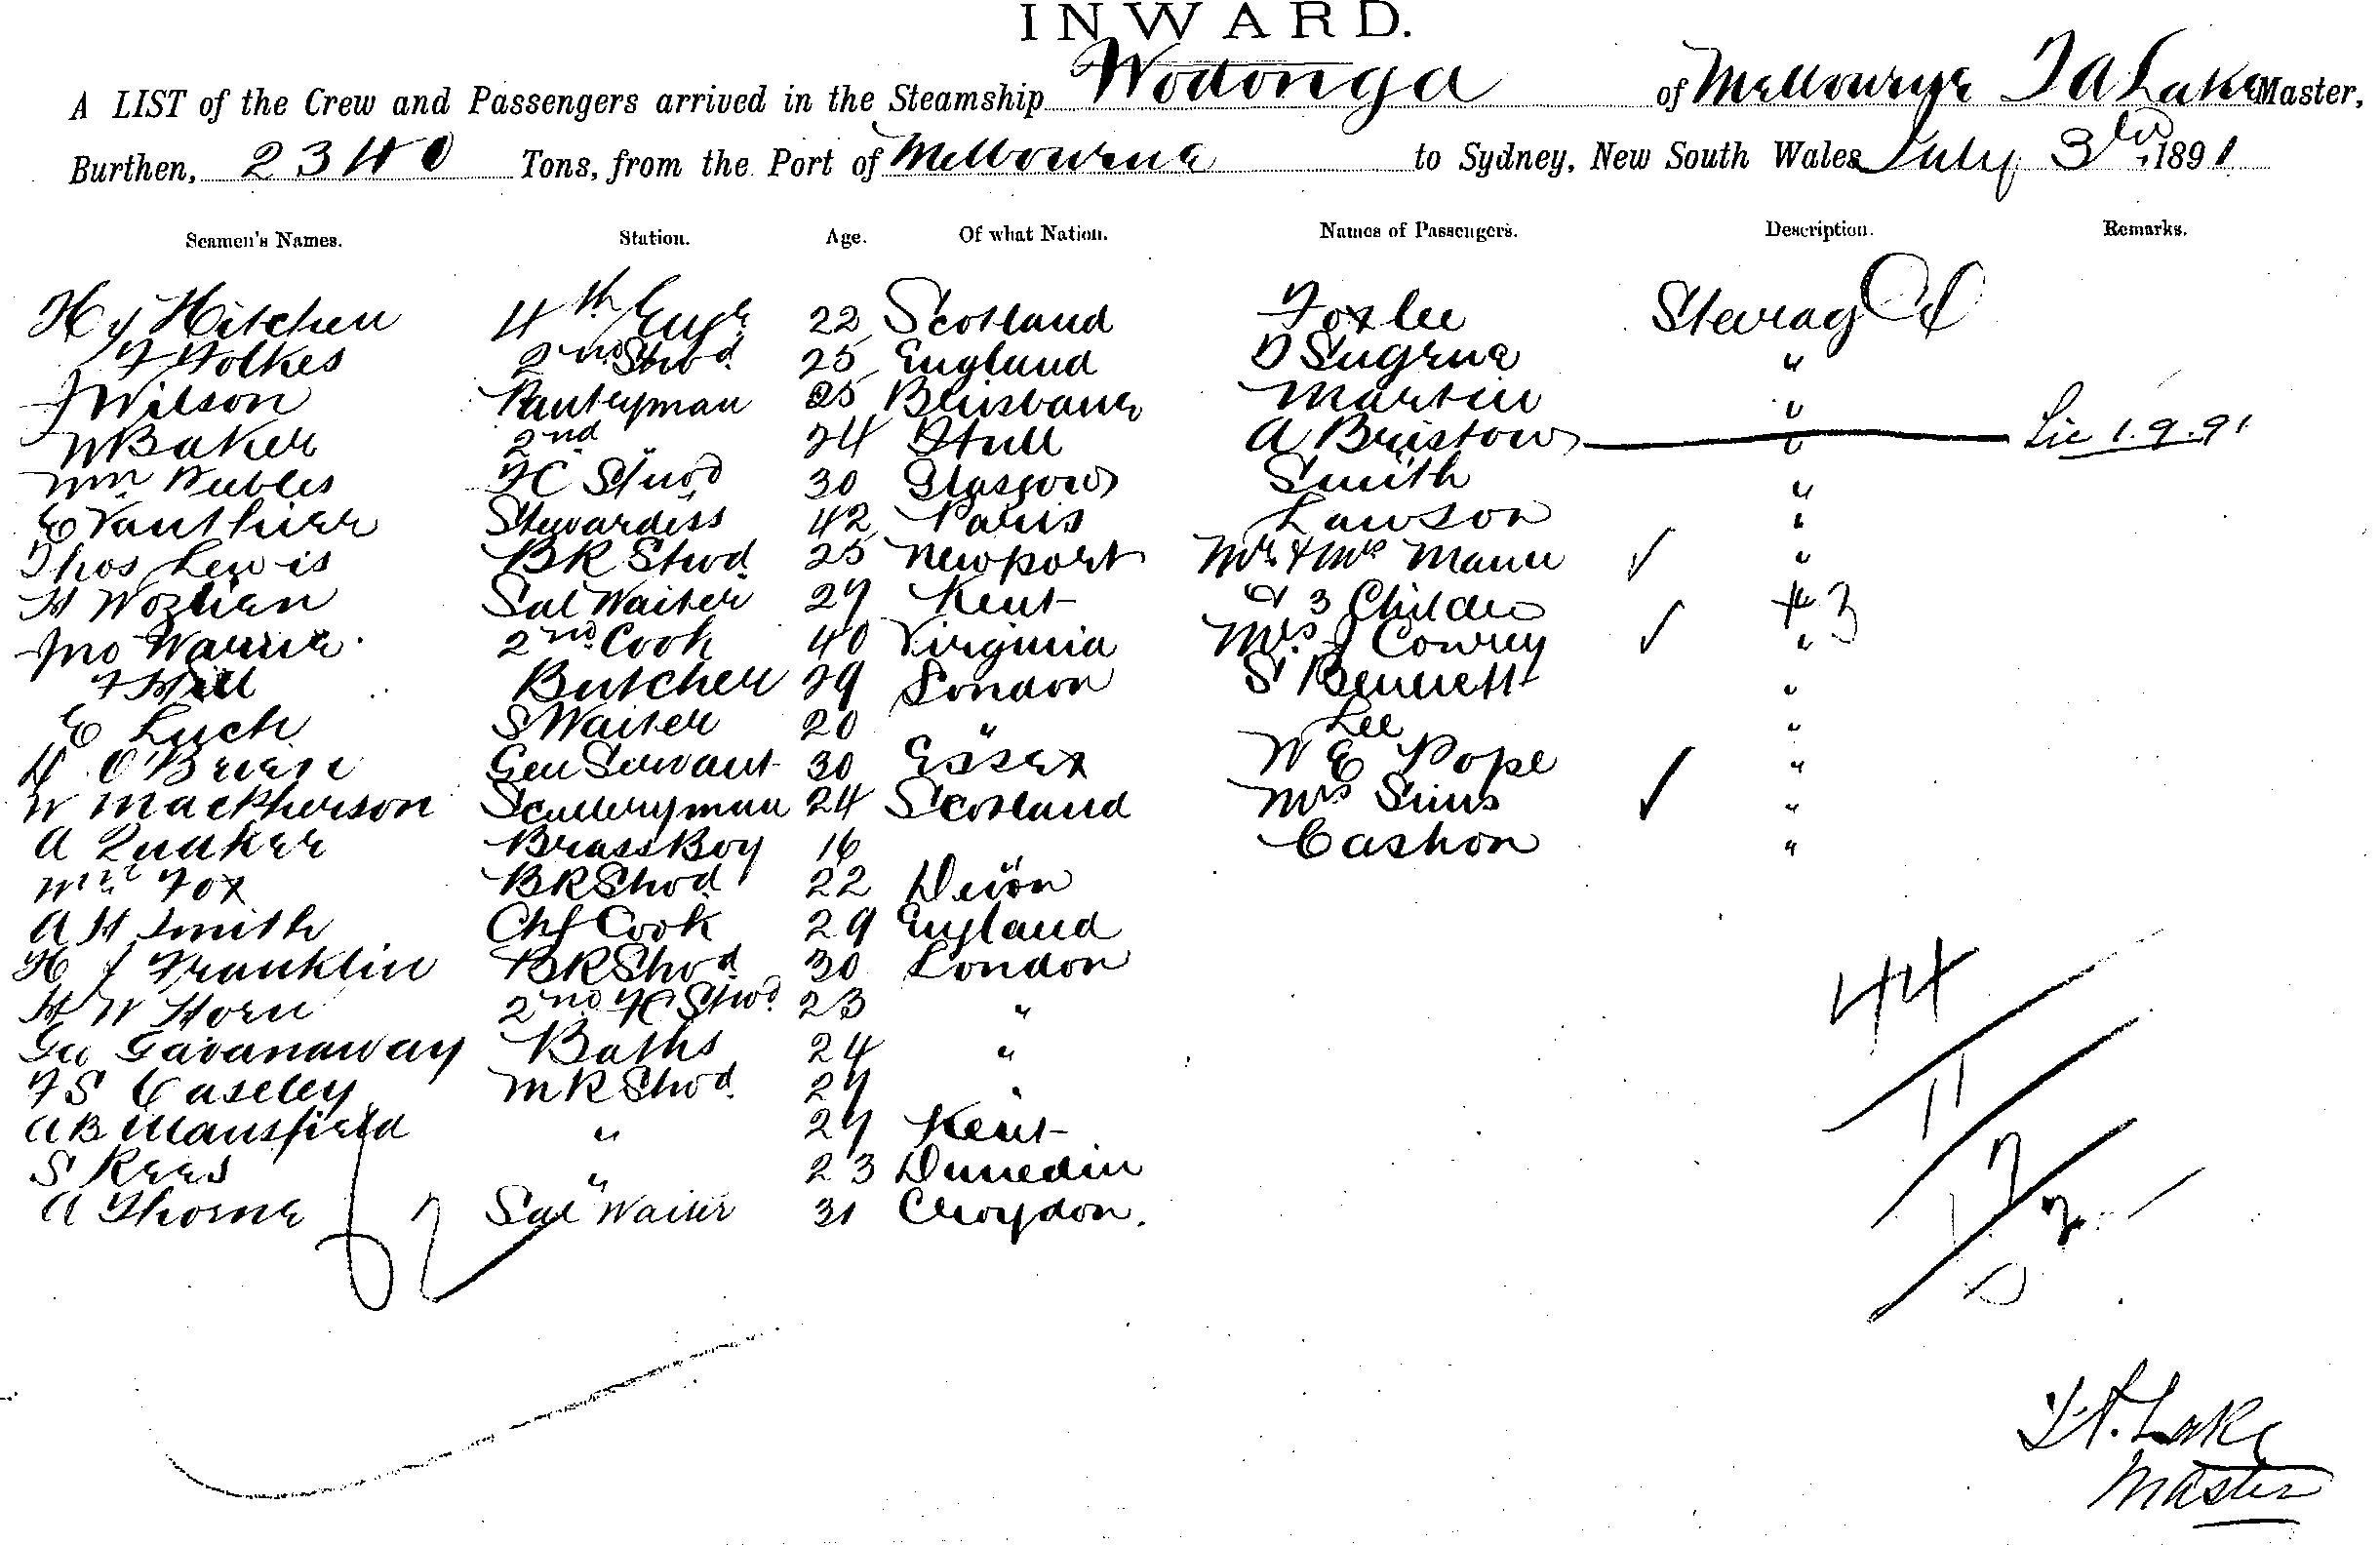 INWARD.
A LIST of the Crew and Passengers arrived in the Steamship Wodonga of Melbourne T A Lake Master,
Burthen, 2340 Tons, from the Port of Melbourne to Sydney, New South Wales July 3rd 1891
Seamen's Names. Station. Age. Of what Nation. Names of Passengers. Description. Remarks.
H J Hitchen 4th Engr 22 Scotland Foxlee Steerag
F Folkes 2nd Stwd 25 England D Sugrue "
J Wilson Pantryman 25 Brisbane Martin "
W Baker 2nd " 24 Hull A Bristow " Lic 1.9.91
Wm Peebles FC Stwd 30 Glasgow Smith "
E Vauthier Stewardess 42 Paris Lawson "
Thos Lewis BR Stwd 25 Newport Mr & Mrs Mann "
H Sal Waiter 27 Kent & 3 Children 3
Jno Warrie 2nd Cook 40 Virginia Mrs J Cowrey "
F Hill Butcher 29 London S Bennett "
E Luch S Waiter 20 " Lee "
H O'Brien Gen Servant 30 Essex W E Pope "
W Mackherson Sculleryman 24 Scotland Mrs Sims "
A Quaker Brass Boy 16 " Cashon "
Wm Fox BR Stwd 22 Devon
A H Smith Chf Cook 29 England
H J Franklin BR Stwd 30 London
H W Horn 2nd FC Stwd 23 "
Geo Gavanaway Baths 24 "
F S Caseley MR Stwd 27 "
A B Mansfield " 27 Kent
S Rees " 23 Dunedin
A Thorne Sal Waiter 31 Croydon.
44
11
T A. Lake
Master